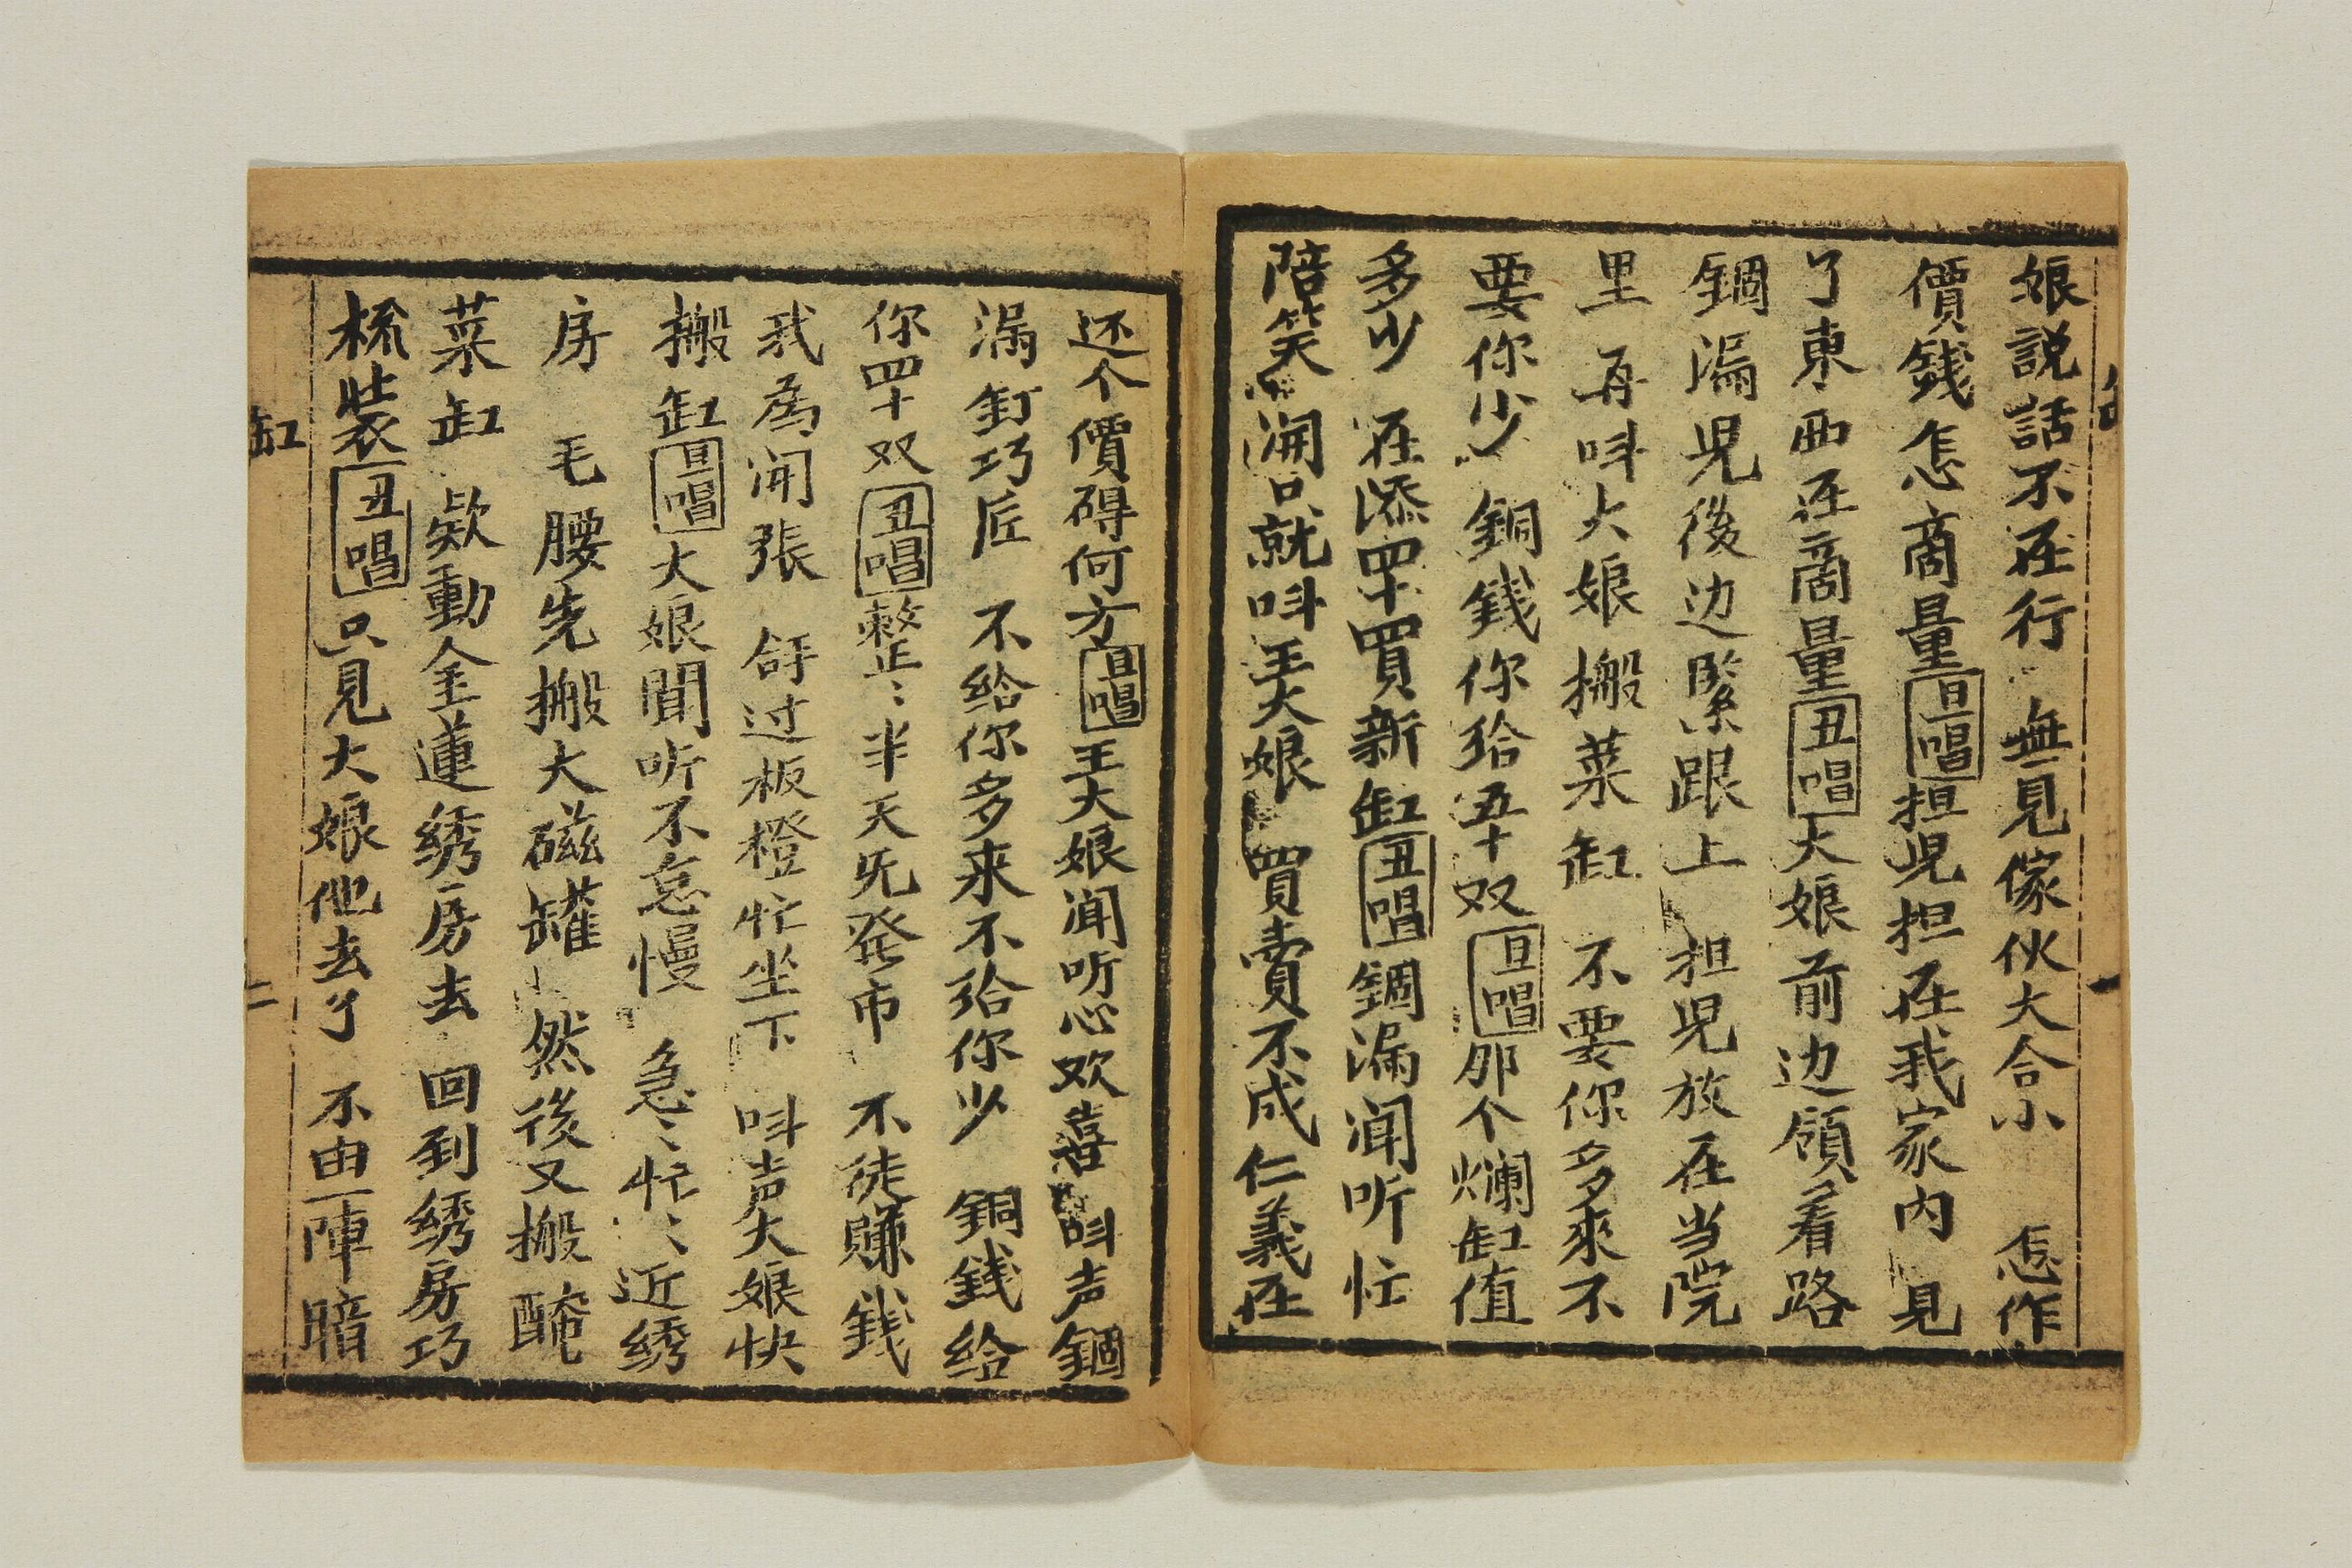 娘說話不在行 無見傢伙大合小 怎作
價錢怎商量旦唱担児担在我家内 見
了東西在商量丑唱大娘前边領着路
錮漏児後边緊跟上 担児放在当院
里 再呌大娘搬菜缸 不要你多來不
要你少 銅錢你给五十双旦唱那个爛缸值
多少 在添四十買新缸丑唱錮漏闻听忙
陪笑 開口就呌王大娘 買賣不成仁義在
还个價碍何方旦唱王大娘闻听心欢喜 呌声錮
漏釘巧匠 不给你多来不给你少 銅錢给
你四十双丑唱整正〻半天旡発市 不徒賺錢
我為開張 拿过板橙忙坐下 呌声大娘快
搬缸旦唱大娘聞听不怠慢 急〻忙〻近绣
房 毛腰先搬大磁罐 然後又搬醃
菜缸 欵動金蓮绣房去 回到绣房巧
梳裝丑唱只見大娘他去了 不由一陣暗
缸
二